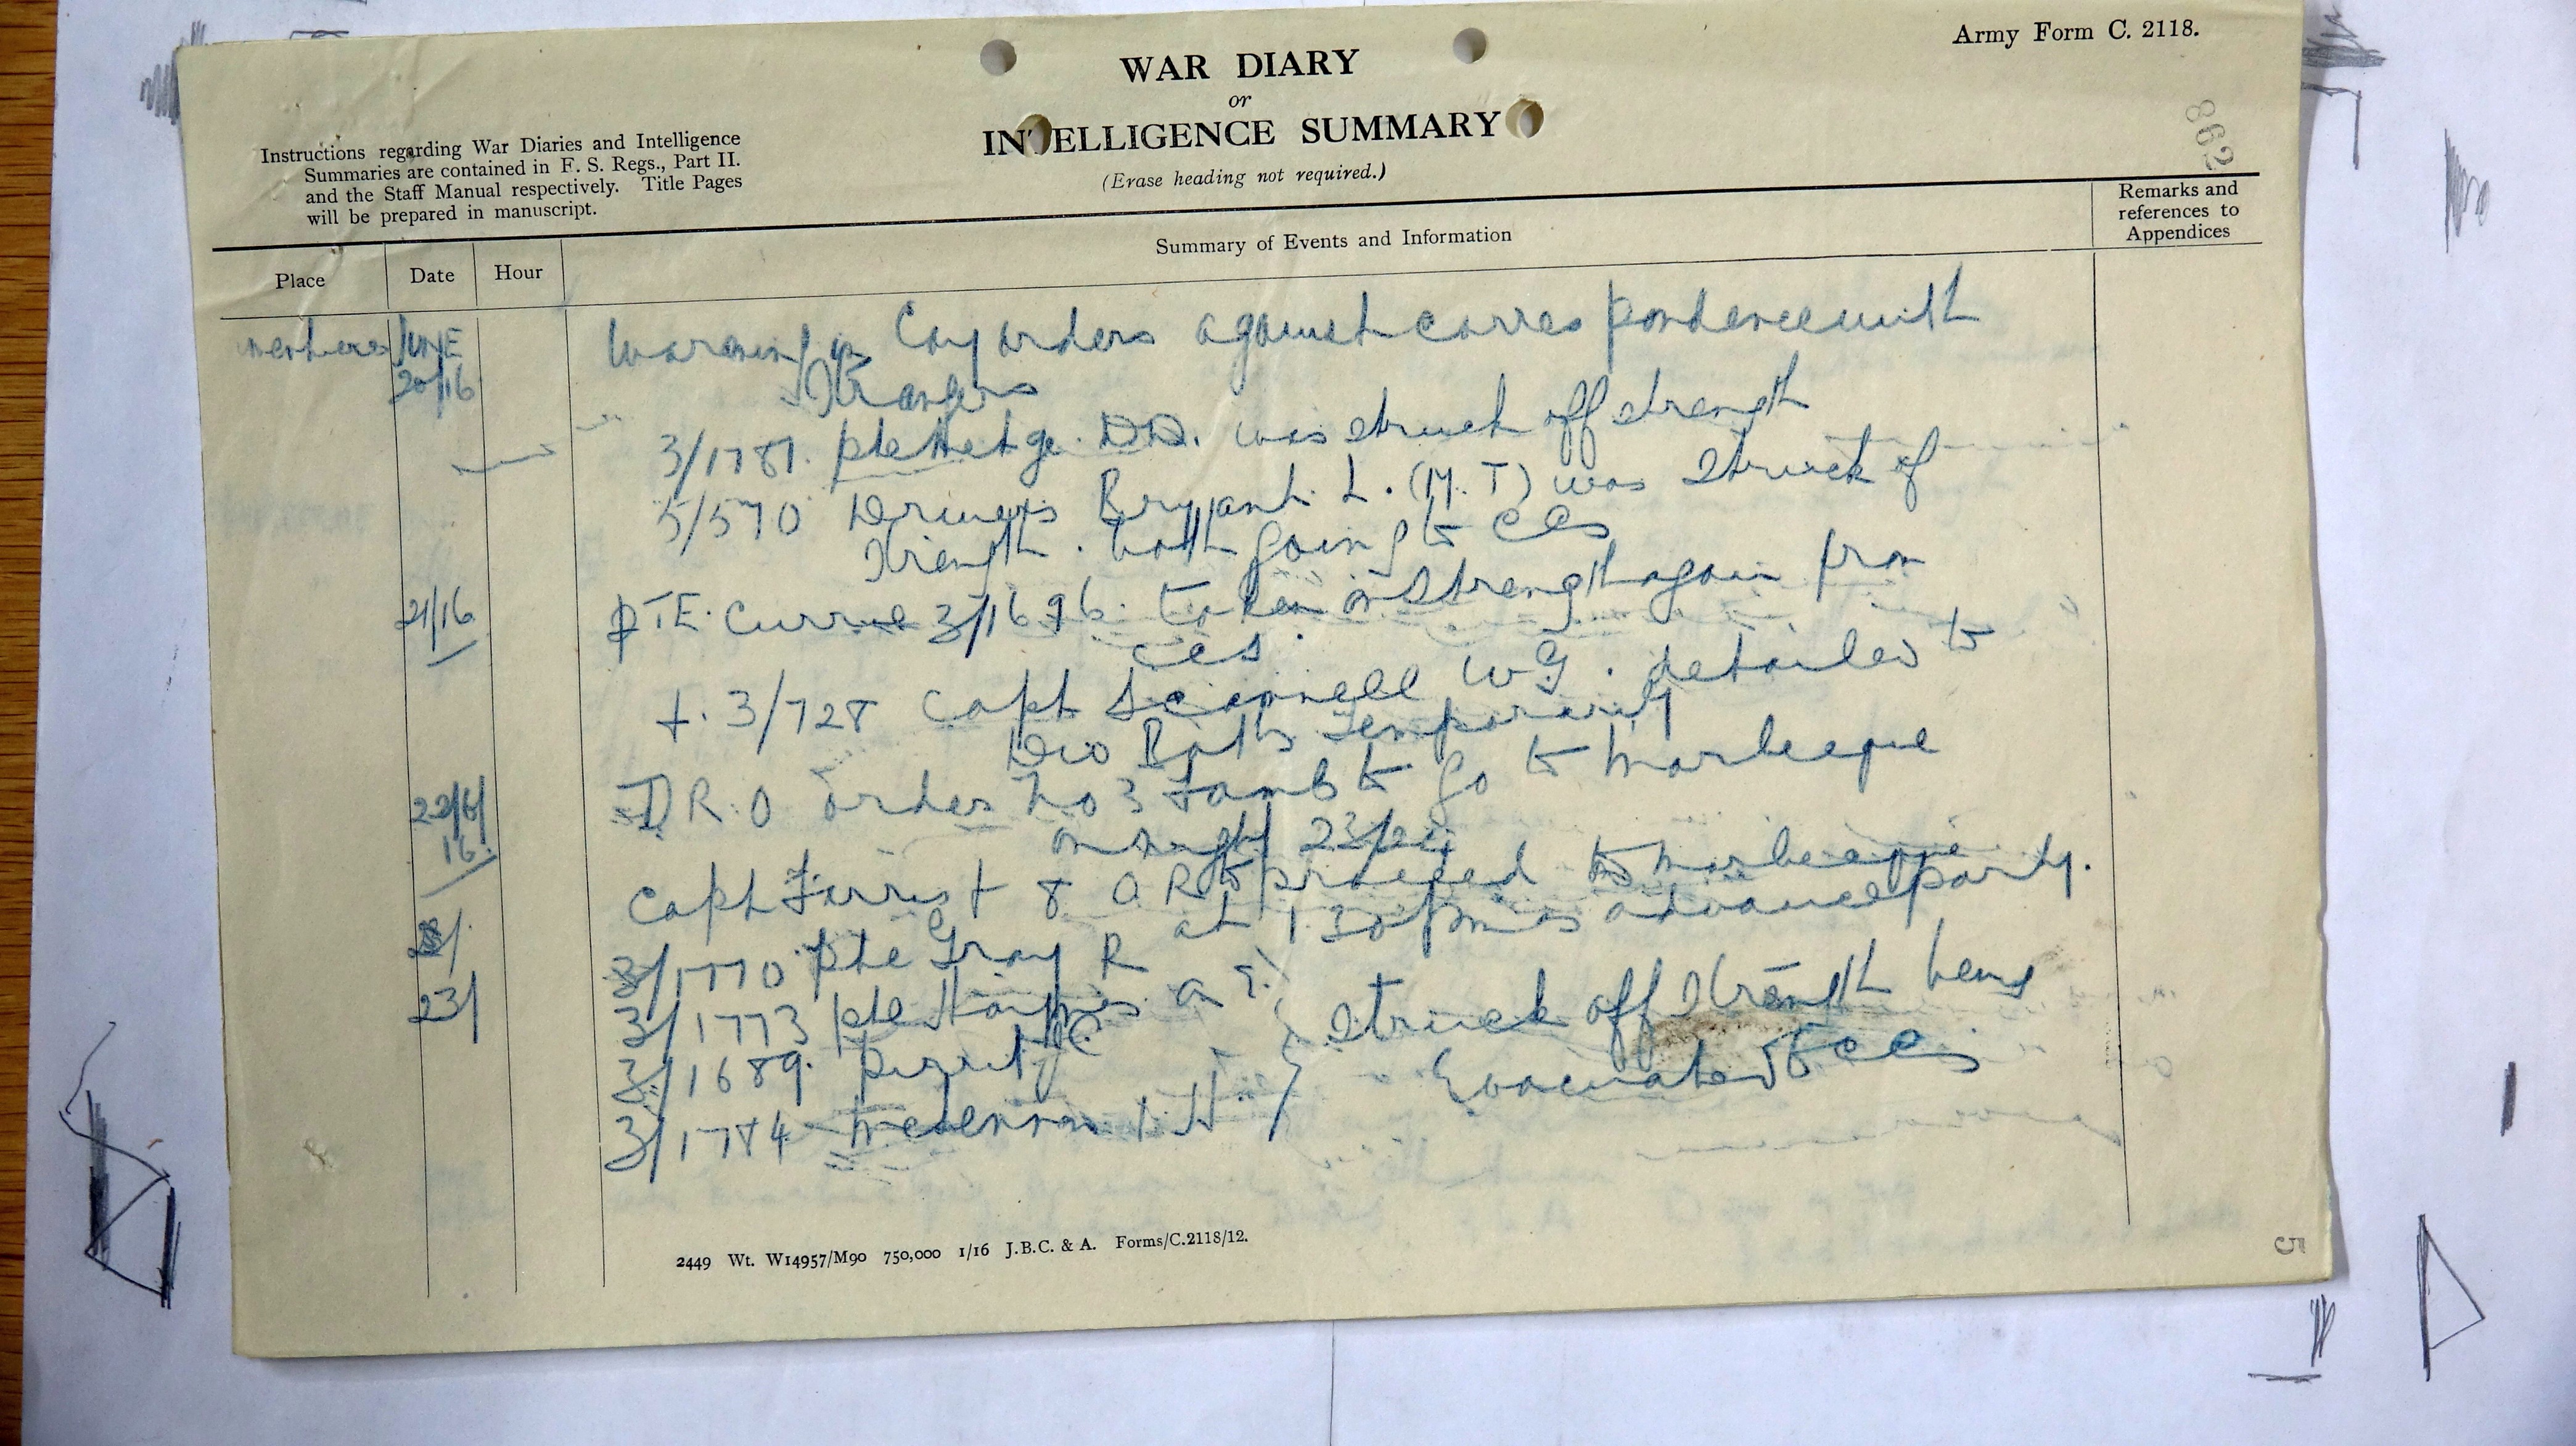 Army Form C. 2118.
WAR DIARY
or
INTELLIGENCE SUMMARY
(Erase heading not required.)
862
Instructions regarding War Diaries and Intelligence
Summaries are contained in F. S. Regs., Part II.
and the Staff Manual respectively. Title Pages
will be prepared in manuscript.
Place
Date
Hour
Summary of Events and Information
Remarks and
references to
Appendices
JUNE
20/16
Warning in Coy orders against correspondence with
Strangers
3/1787. Pte DD. was struck off strength
5/570 Drivers Bryant. L. (M. T) was struck of
strength. both going to CCS
21/16
PTE. Currie 3/1696. taken on strength again from
CCS.
+. 3/728 Capt Scannell WG. detailed to
Div Baths temporarily
22/6/
16.
D R. O order No 3 Famb to go to Morbecque
on night 23/
Capt Farris + 8 OR to proceed to Morbecque
at 1.30pm as advance party.
3/1770 Pte Gray R
23/
3/1773 Pte a E.
struck off strength being
3/1689.
Evacuated to CCS
3/1784
2449 Wt. W14957/M90 750,000 1/16 J.B.C. & A. Forms/C.2118/12.
5